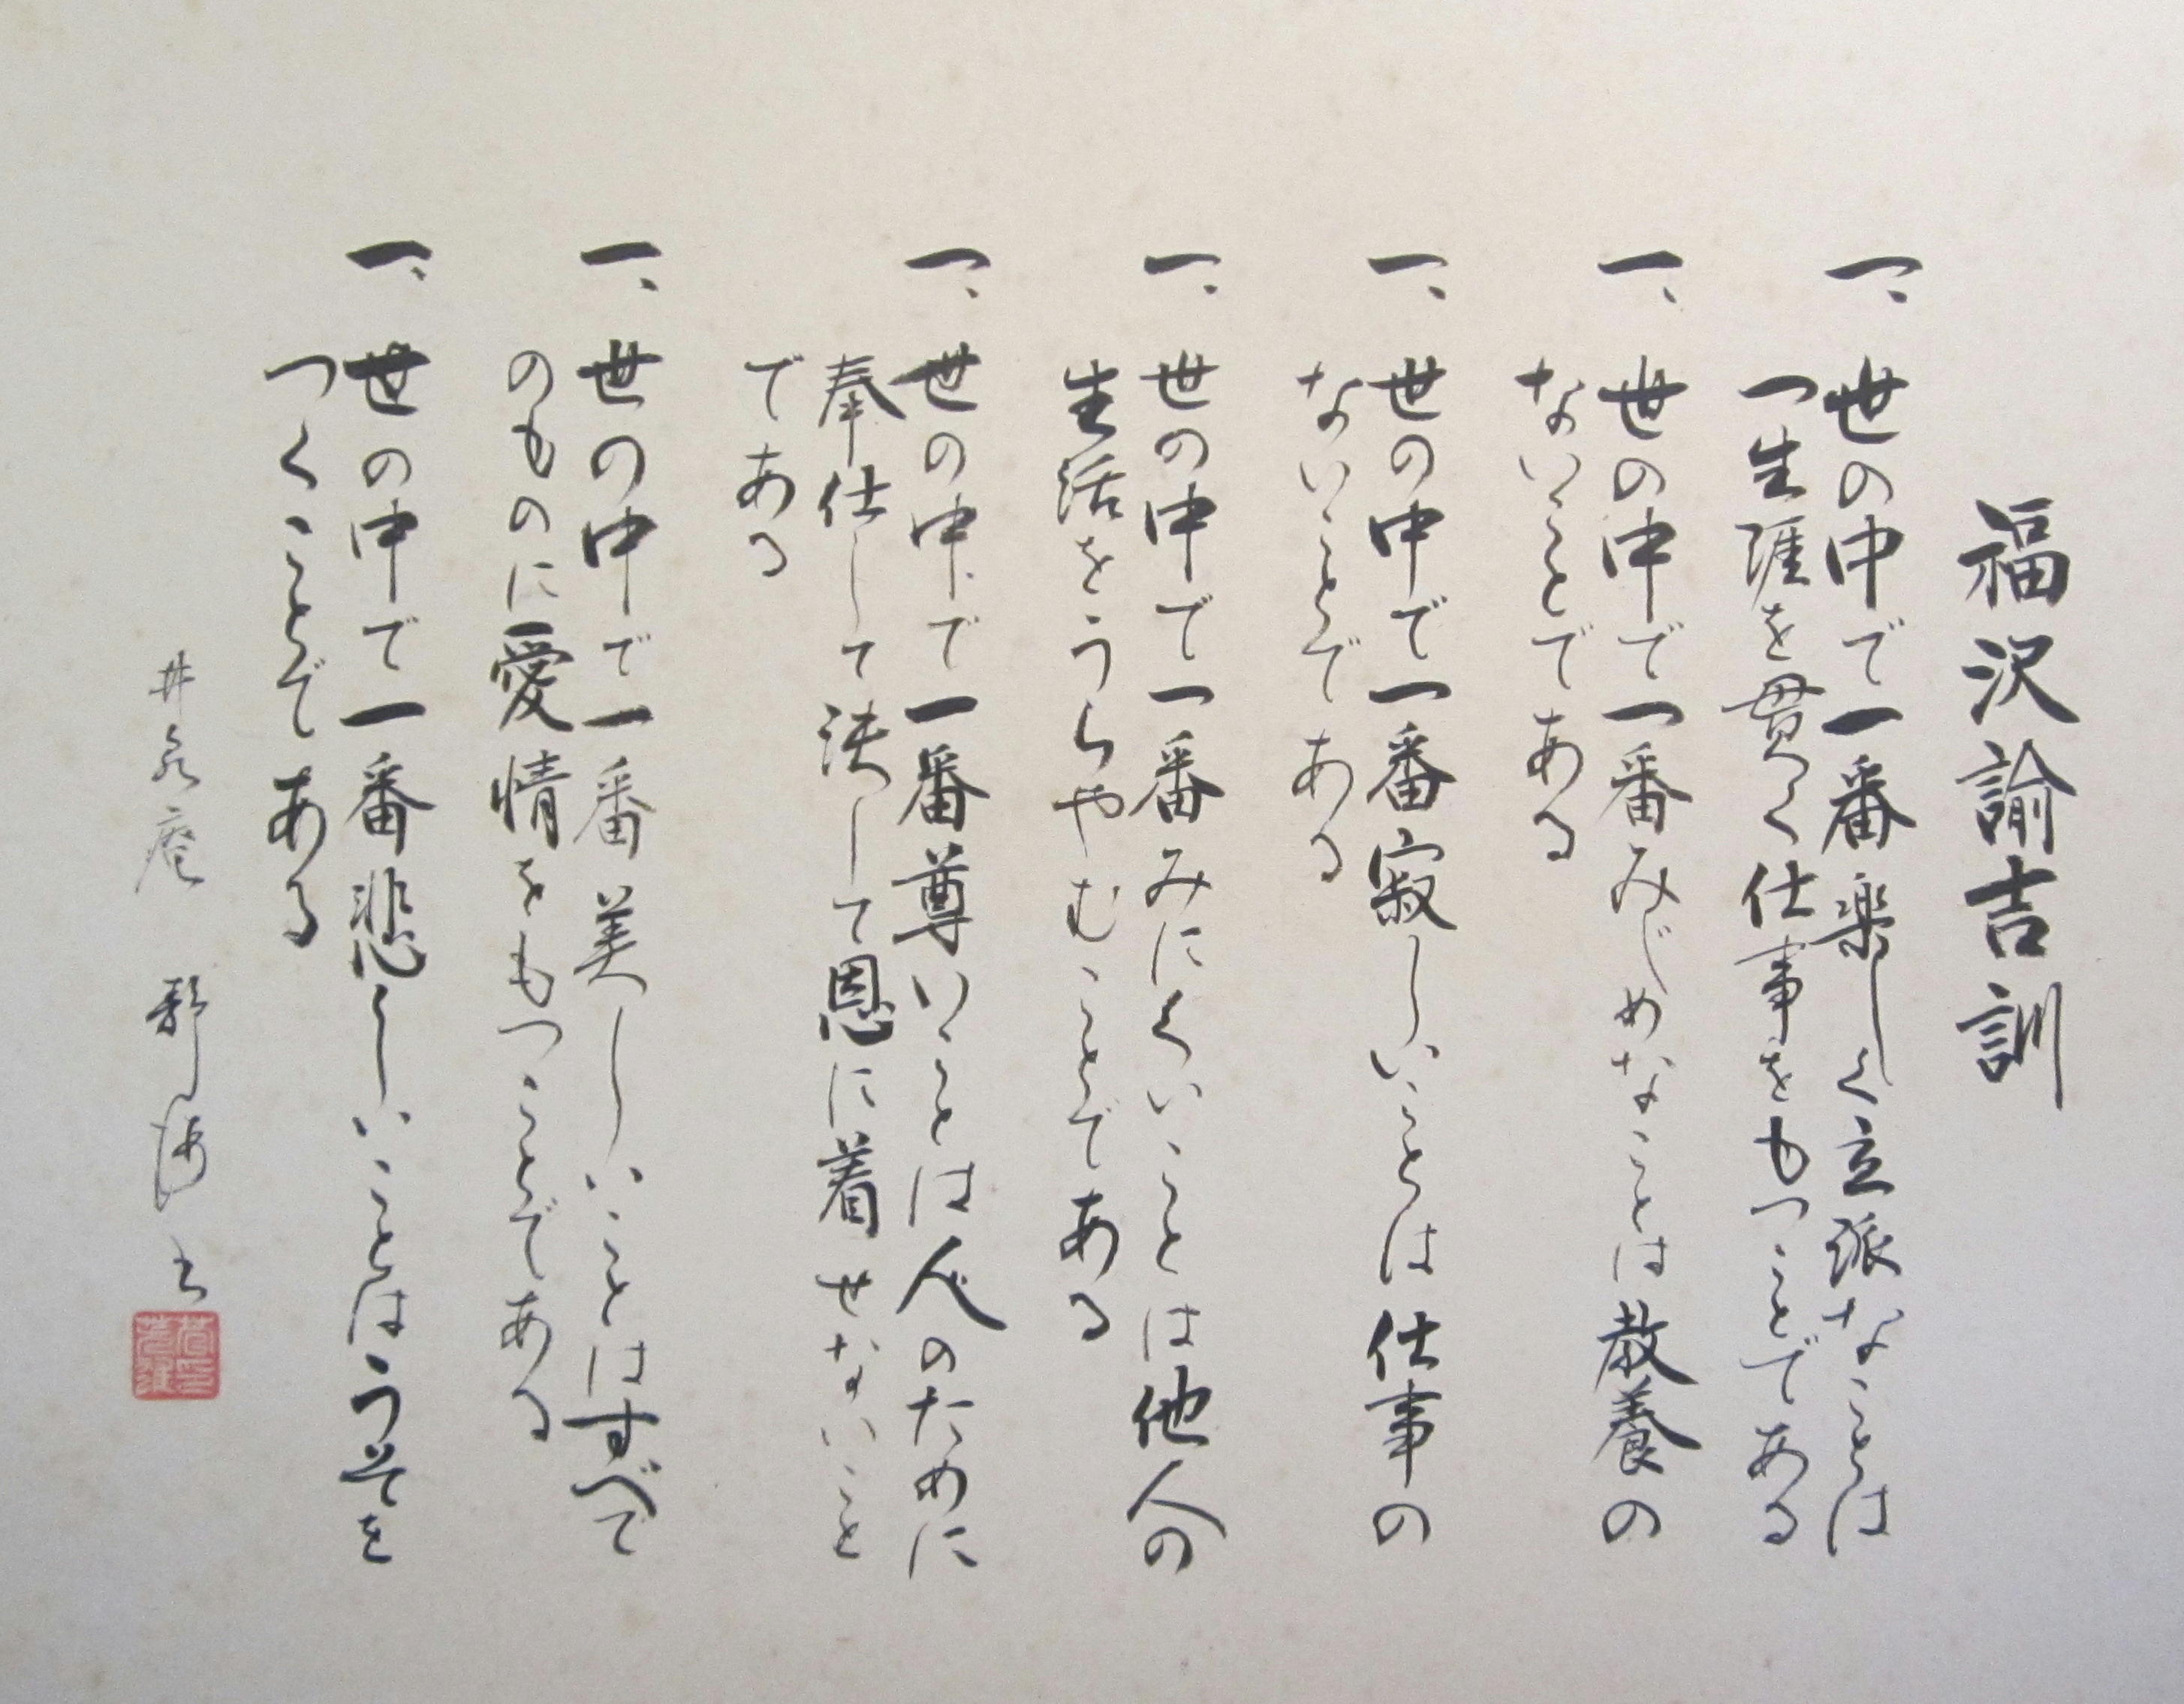 福沢諭吉訓
一、世の中で一番楽しく立派なことは
一生涯を貫く仕事をもつことである
一、世の中で一番みじめなことは教養の
ないことである
一、世の中で一番寂しいことは仕事の
ないことである
一、世の中で一番みにくいことは他人の
生活をうらやむことである
一、世の中で一番尊いことは人のために
奉仕して決して恩に着せないこと
である
一、世の中で一番美しいことはすべて
のものに愛情をもつことである
一、世の中で一番悲しいことはうそを
つくことである